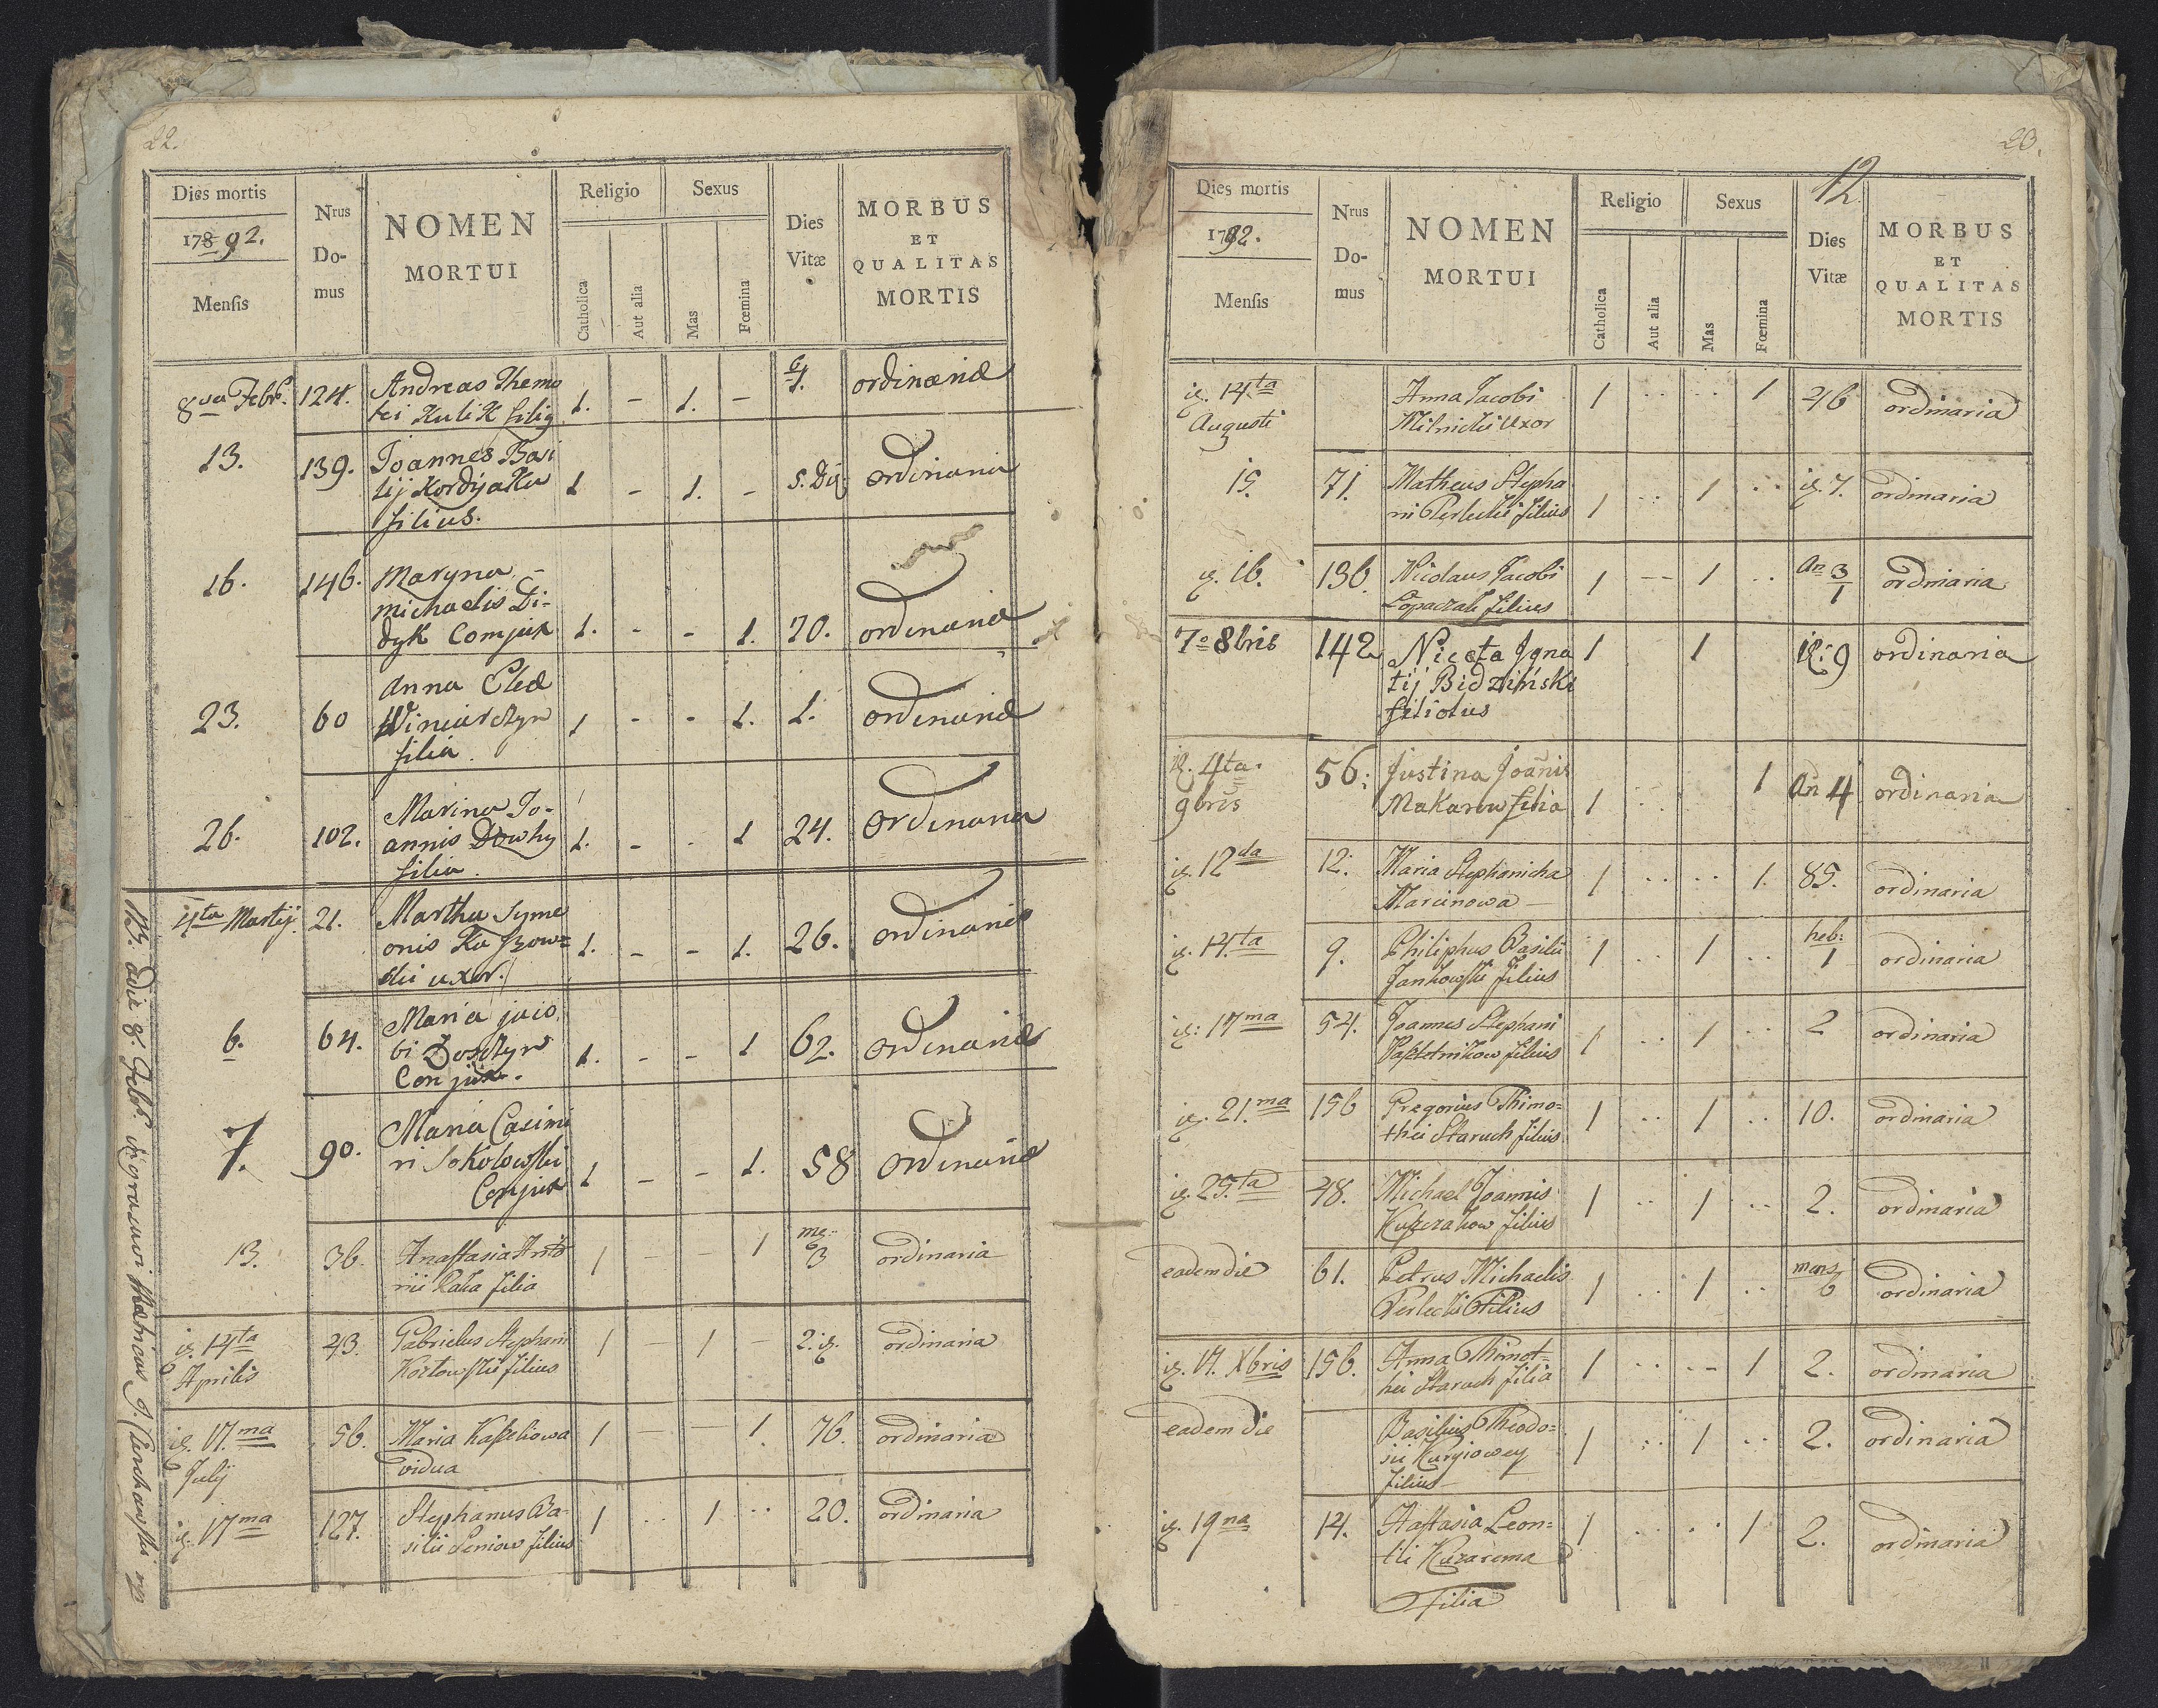 22.
Dies mortis
1792.
Mensis
Nrus
Do-
mus
NOMEN
MORTUI
Religio
Catholica
Aut alia
Sexus
Mas
Fœmina
Dies
Vitæ
MORBUS
ET
QUALITAS
MORTIS
8va Febr. 124. Andreas Themo 1. - 1. - ordinaria
tei Kulik filius
13. 139. Joannes Basi 1 - 1. - 5. ordinaria
lij Kordyaka
filius.
16. 146. Maryna
michaelis Di-
dyk Conjux 1. - - 1. 70. ordinaria
23. 60 Anna
Winiarczyn 1 - - 1. 1. ordinaria
filia.
26. 102. Marina Jo-
annis Dowhy 1. - - 1 24. ordinaria
filia.
4ta Martij. 21. Martha Syme
onis 1. - - 1. 26. ordinaria
uxor.
6. 64. Maria jaco
bi 1. - - 1 62. ordinaria
Conjux.
7. 90. Maria Casimi
ri Sokolowski 1 - - 1. 58 ordinaria
Conjux
13. 36. Anastasia Anto 1 - - 1 me: 3 ordinaria
nii filia
14ta 43. Gabrielus Stephani 1 - 1 - 2. ordinaria
Aprilis filius
17.ma 56. Maria 1 - - 1. 76. ordinaria
Julij vidua
17ma 127. Stephanus Ba- 1 .. 1 .. 20. ordinaria
silii Seniow filius
NB. a die 8. Febr.
23.
12.
Dies mortis
1792.
Mensis
Nrus
Do-
mus
NOMEN
MORTUI
Religio
Catholica
Aut alia
Sexus
Mas
Fœmina
Dies
Vitæ
MORBUS
ET
QUALITAS
MORTIS
14.ta Anna Jacobi 1 .. .. 1 46 ordinaria
Augusti Uxor
15. 71. Matheus Stepha 1 .. 1 .. 7. ordinaria
ni Perlecki filius
16. 136. Nicolaus Jacobi 1 -- 1 .. An 3 ordinaria
Lopaczak filius 1
7a 8bris 142 Niceta Igna 1 1 9 ordinaria
tij Bidziński
filiolus
4ta. 56: Justina Joanis 1 .. 1 An 4 ordinaria
9bris Makarow filia
12da 12. Maria Stephanicha 1 .. .. 1. 85. ordinaria
Marcinowa
14.ta 9. Philiphus Basilii 1 .. 1 .. heb: 1 ordinaria
Jankowski filius
17ma 54. Joannes Stephani 1 .. 1 .. 2 ordinaria
filius
21.ma 156 Gregorius Thimo= 1 .. 1 .. 10. ordinaria
thei Staruch filius.
25.ta 48. Michael Joannis 1 .. 1 .. 2. ordinaria
filius
eadem die 61. Petrus Michaelis 1 .. 1 .. mens 6 ordinaria
Perlecki Filius
17. Xbris 156. Anna Thimot= 1 .. .. 1 2. ordinaria
hei Staruch filia
eadem die Basilius Theodo= 1 .. 1 .. 2. ordinaria
sii
filius
19na 14. Leon= 1 .. .. 1 2. ordinaria
tii
Filia